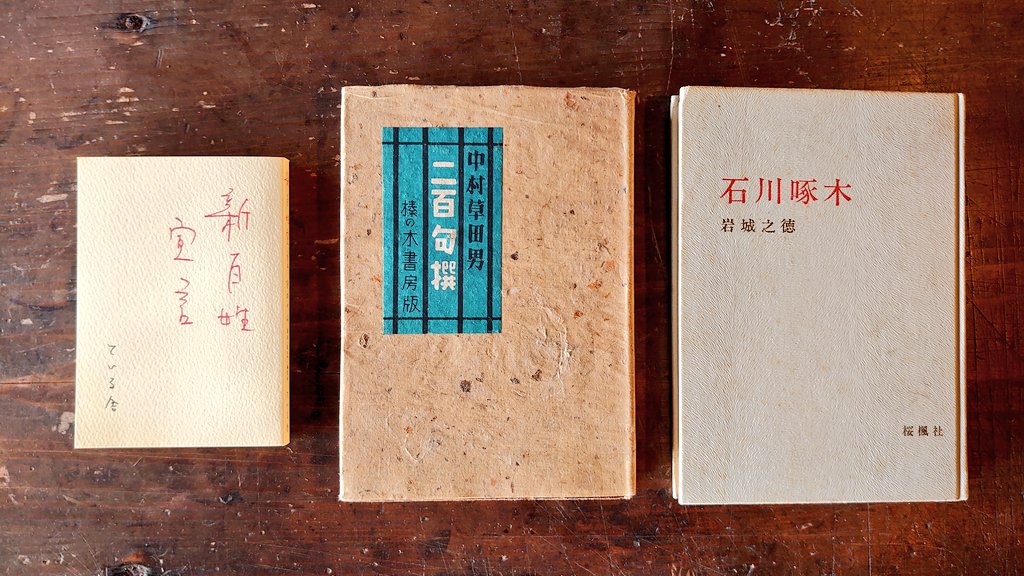 新百姓
宣言
てひる舎
中村草田男
二百句撰
榛の木書房版
石川啄木
岩城之徳
桜楓社